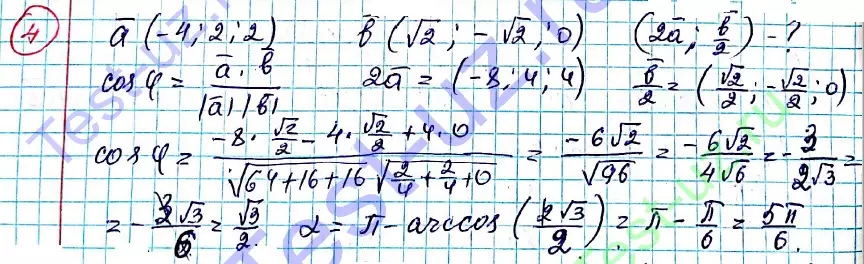 4 a̅ (-4; 2; 2) b̅ (√2; -√2; 0) (2a̅; b̅/2) - ?
cos φ = a̅ · b̅ / |a̅| |b̅| 2a̅ = (-8; 4; 4) b̅/2 = (√2/2; -√2/2; 0)
cos φ = (-8 · √2/2 - 4 · √2/2 + 4 · 0) / (√(64+16+16) √(2/4 + 2/4 + 0)) = -6√2/√96 = -6√2/4√6 = -3/2√3 =
= -3√3/6 = √3/2. α = π - arccos (√3/2) = π - π/6 = 5π/6.
Test-uz.ru